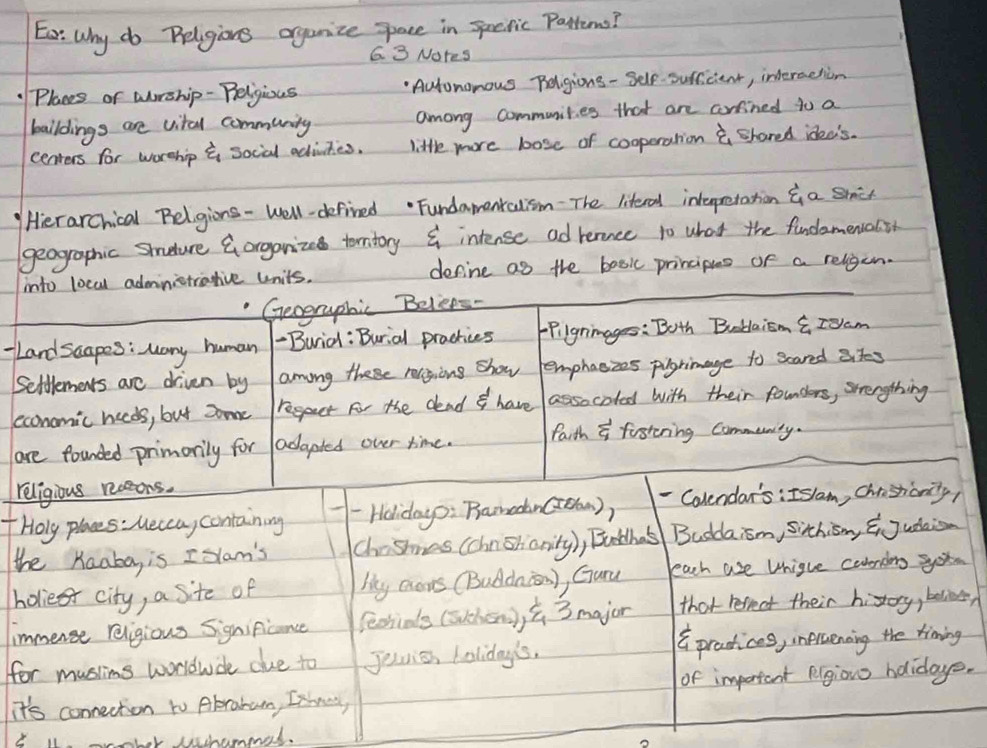 EQ: Why do Religions organize space in specific Patterns?
6.3 Notes
• Places of Worship - Religious
buildings are vital community
centers for worship & social activities.
• Autonomous Religions - Self-sufficient, interaction
among communities that are confined to a
little more loose of cooperation & shared ideas.
• Hierarchical Religions - Well-defined
geographic structure & organizes territory
into local administrative units.
• Fundamentalism - The literal interpretation & a strict
& intense adherence to what the fundamentalist
define as the basic principles of a religion.
• Geographic Beliefs -
- Landscapes: Many human
Settlements are driven by
economic needs, but some
are founded primarily for
religious reasons.
- Burial: Burial practices
among these religions show
respect for the dead & have
adapted over time.
- Pilgrimages: Both Buddaism & Islam
emphasizes pilgrimage to scared sites
associated with their founders, strengthing
faith & fostering community.
- Holy places: Mecca, containing
the Kaaba, is Islam's
holiest city, a site of
immense religious significance
for muslims worldwide due to
it's connection to Abraham,
& Muhammad.
- Holidays: (Islam),
Christmas (Christianity), Buddha's
(Buddaism), Guru
festivals & 3 major
Jewish holiday's.
- Calendar's: Islam, Christianity,
Buddaism, Sikhism, & Judaism
each use unique system
that reflect their history, beliefs,
& practices, influencing the timing
of important religious holidays.